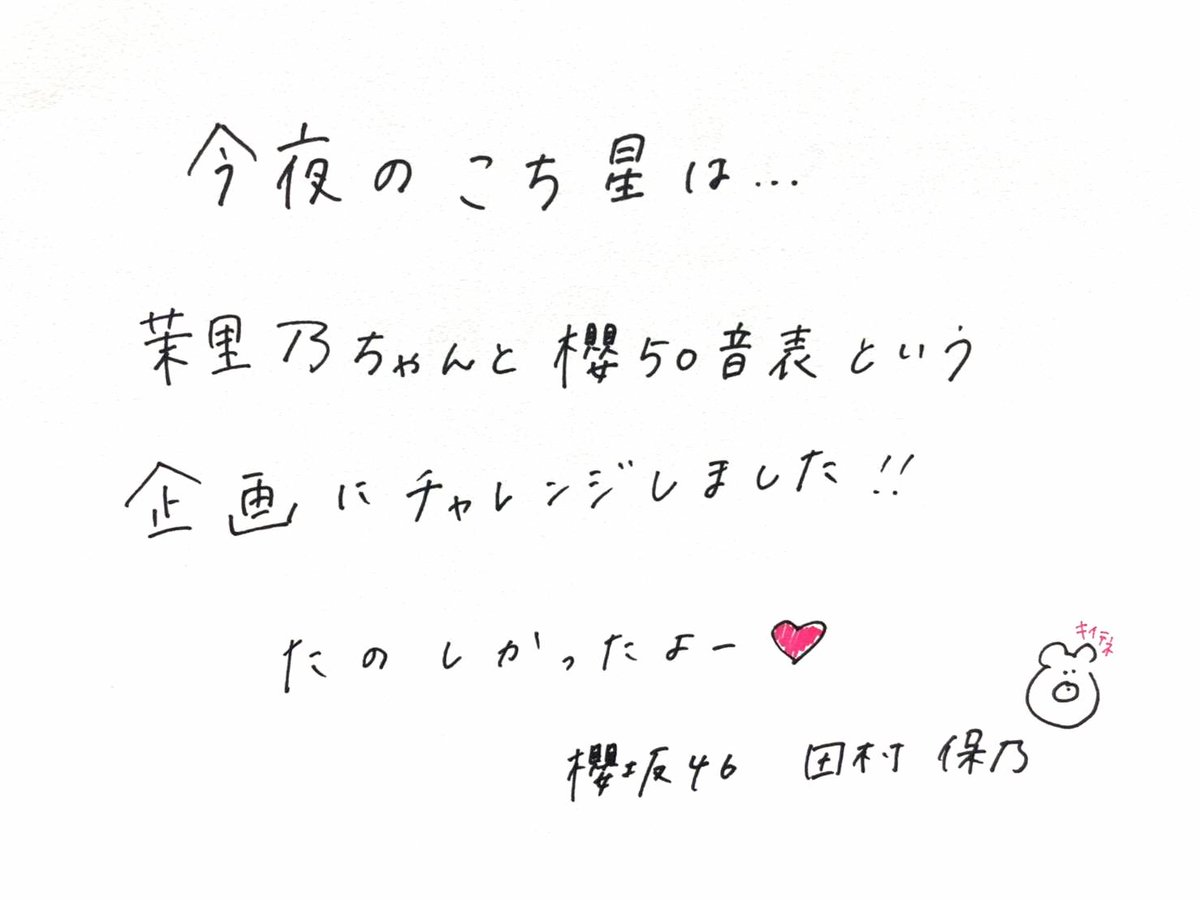 今夜のこち星は...
茉里乃ちゃんと櫻50音表という
企画にチャレンジしました!!
たのしかったよー
キイテネ
櫻坂46 田村保乃